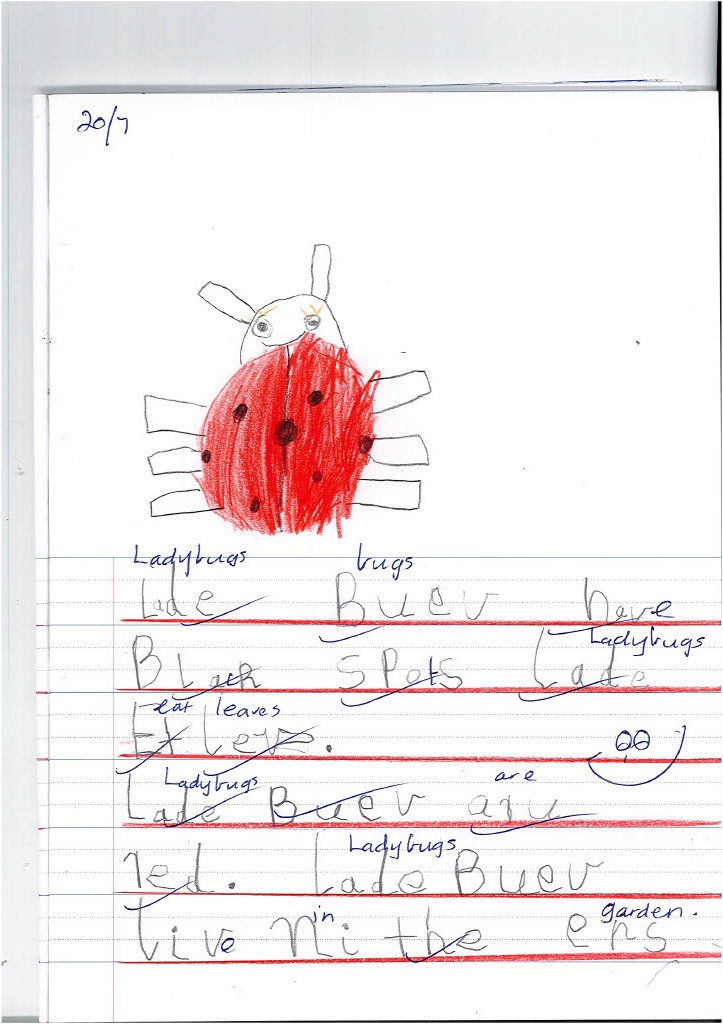 20/7
Ladybugs bugs
Lade Buev have
Ladybugs
Black spots Lade
eat leaves
Et leve.
Ladybugs are
Lade Buev aru
red. Lade Buev
Ladybugs
in garden.
live ni the ens